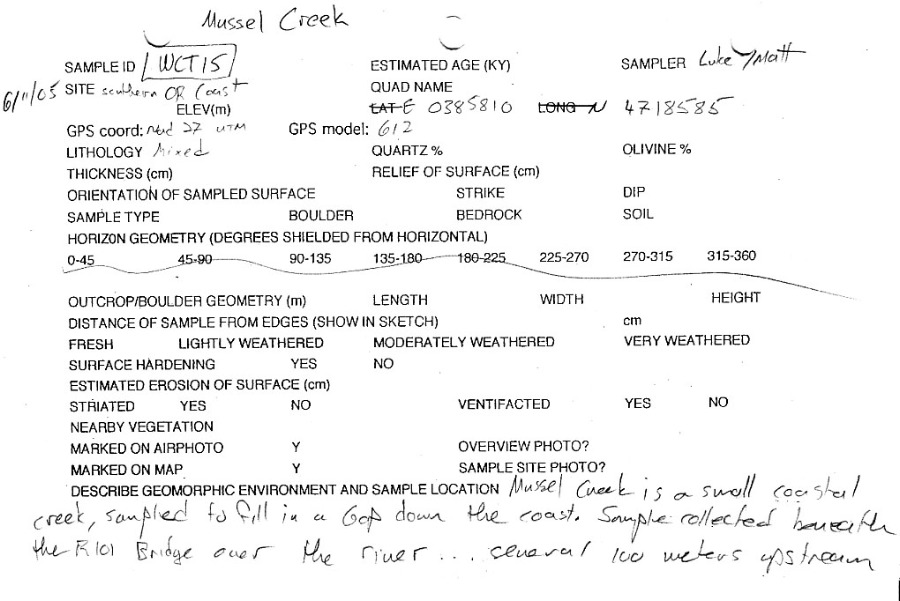 Mussel Creek
SAMPLE ID WCT15 ESTIMATED AGE (KY) SAMPLER Luke / Matt
6/11/05 SITE southern OR Coast QUAD NAME
ELEV(m) LAT E 0385810 LONG N 4718585
GPS coord: Nad 27 UTM GPS model: 612
LITHOLOGY Mixed QUARTZ % OLIVINE %
THICKNESS (cm) RELIEF OF SURFACE (cm)
ORIENTATION OF SAMPLED SURFACE STRIKE DIP
SAMPLE TYPE BOULDER BEDROCK SOIL
HORIZON GEOMETRY (DEGREES SHIELDED FROM HORIZONTAL)
0-45 45-90 90-135 135-180 180-225 225-270 270-315 315-360
OUTCROP/BOULDER GEOMETRY (m) LENGTH WIDTH HEIGHT
DISTANCE OF SAMPLE FROM EDGES (SHOW IN SKETCH) cm
FRESH LIGHTLY WEATHERED MODERATELY WEATHERED VERY WEATHERED
SURFACE HARDENING YES NO
ESTIMATED EROSION OF SURFACE (cm)
STRIATED YES NO VENTIFACTED YES NO
NEARBY VEGETATION
MARKED ON AIRPHOTO Y OVERVIEW PHOTO?
MARKED ON MAP Y SAMPLE SITE PHOTO?
DESCRIBE GEOMORPHIC ENVIRONMENT AND SAMPLE LOCATION Mussel Creek is a small coastal
creek, sampled to fill in a Gap down the coast. Sample collected beneath
the R101 Bridge over the river... several 100 meters upstream